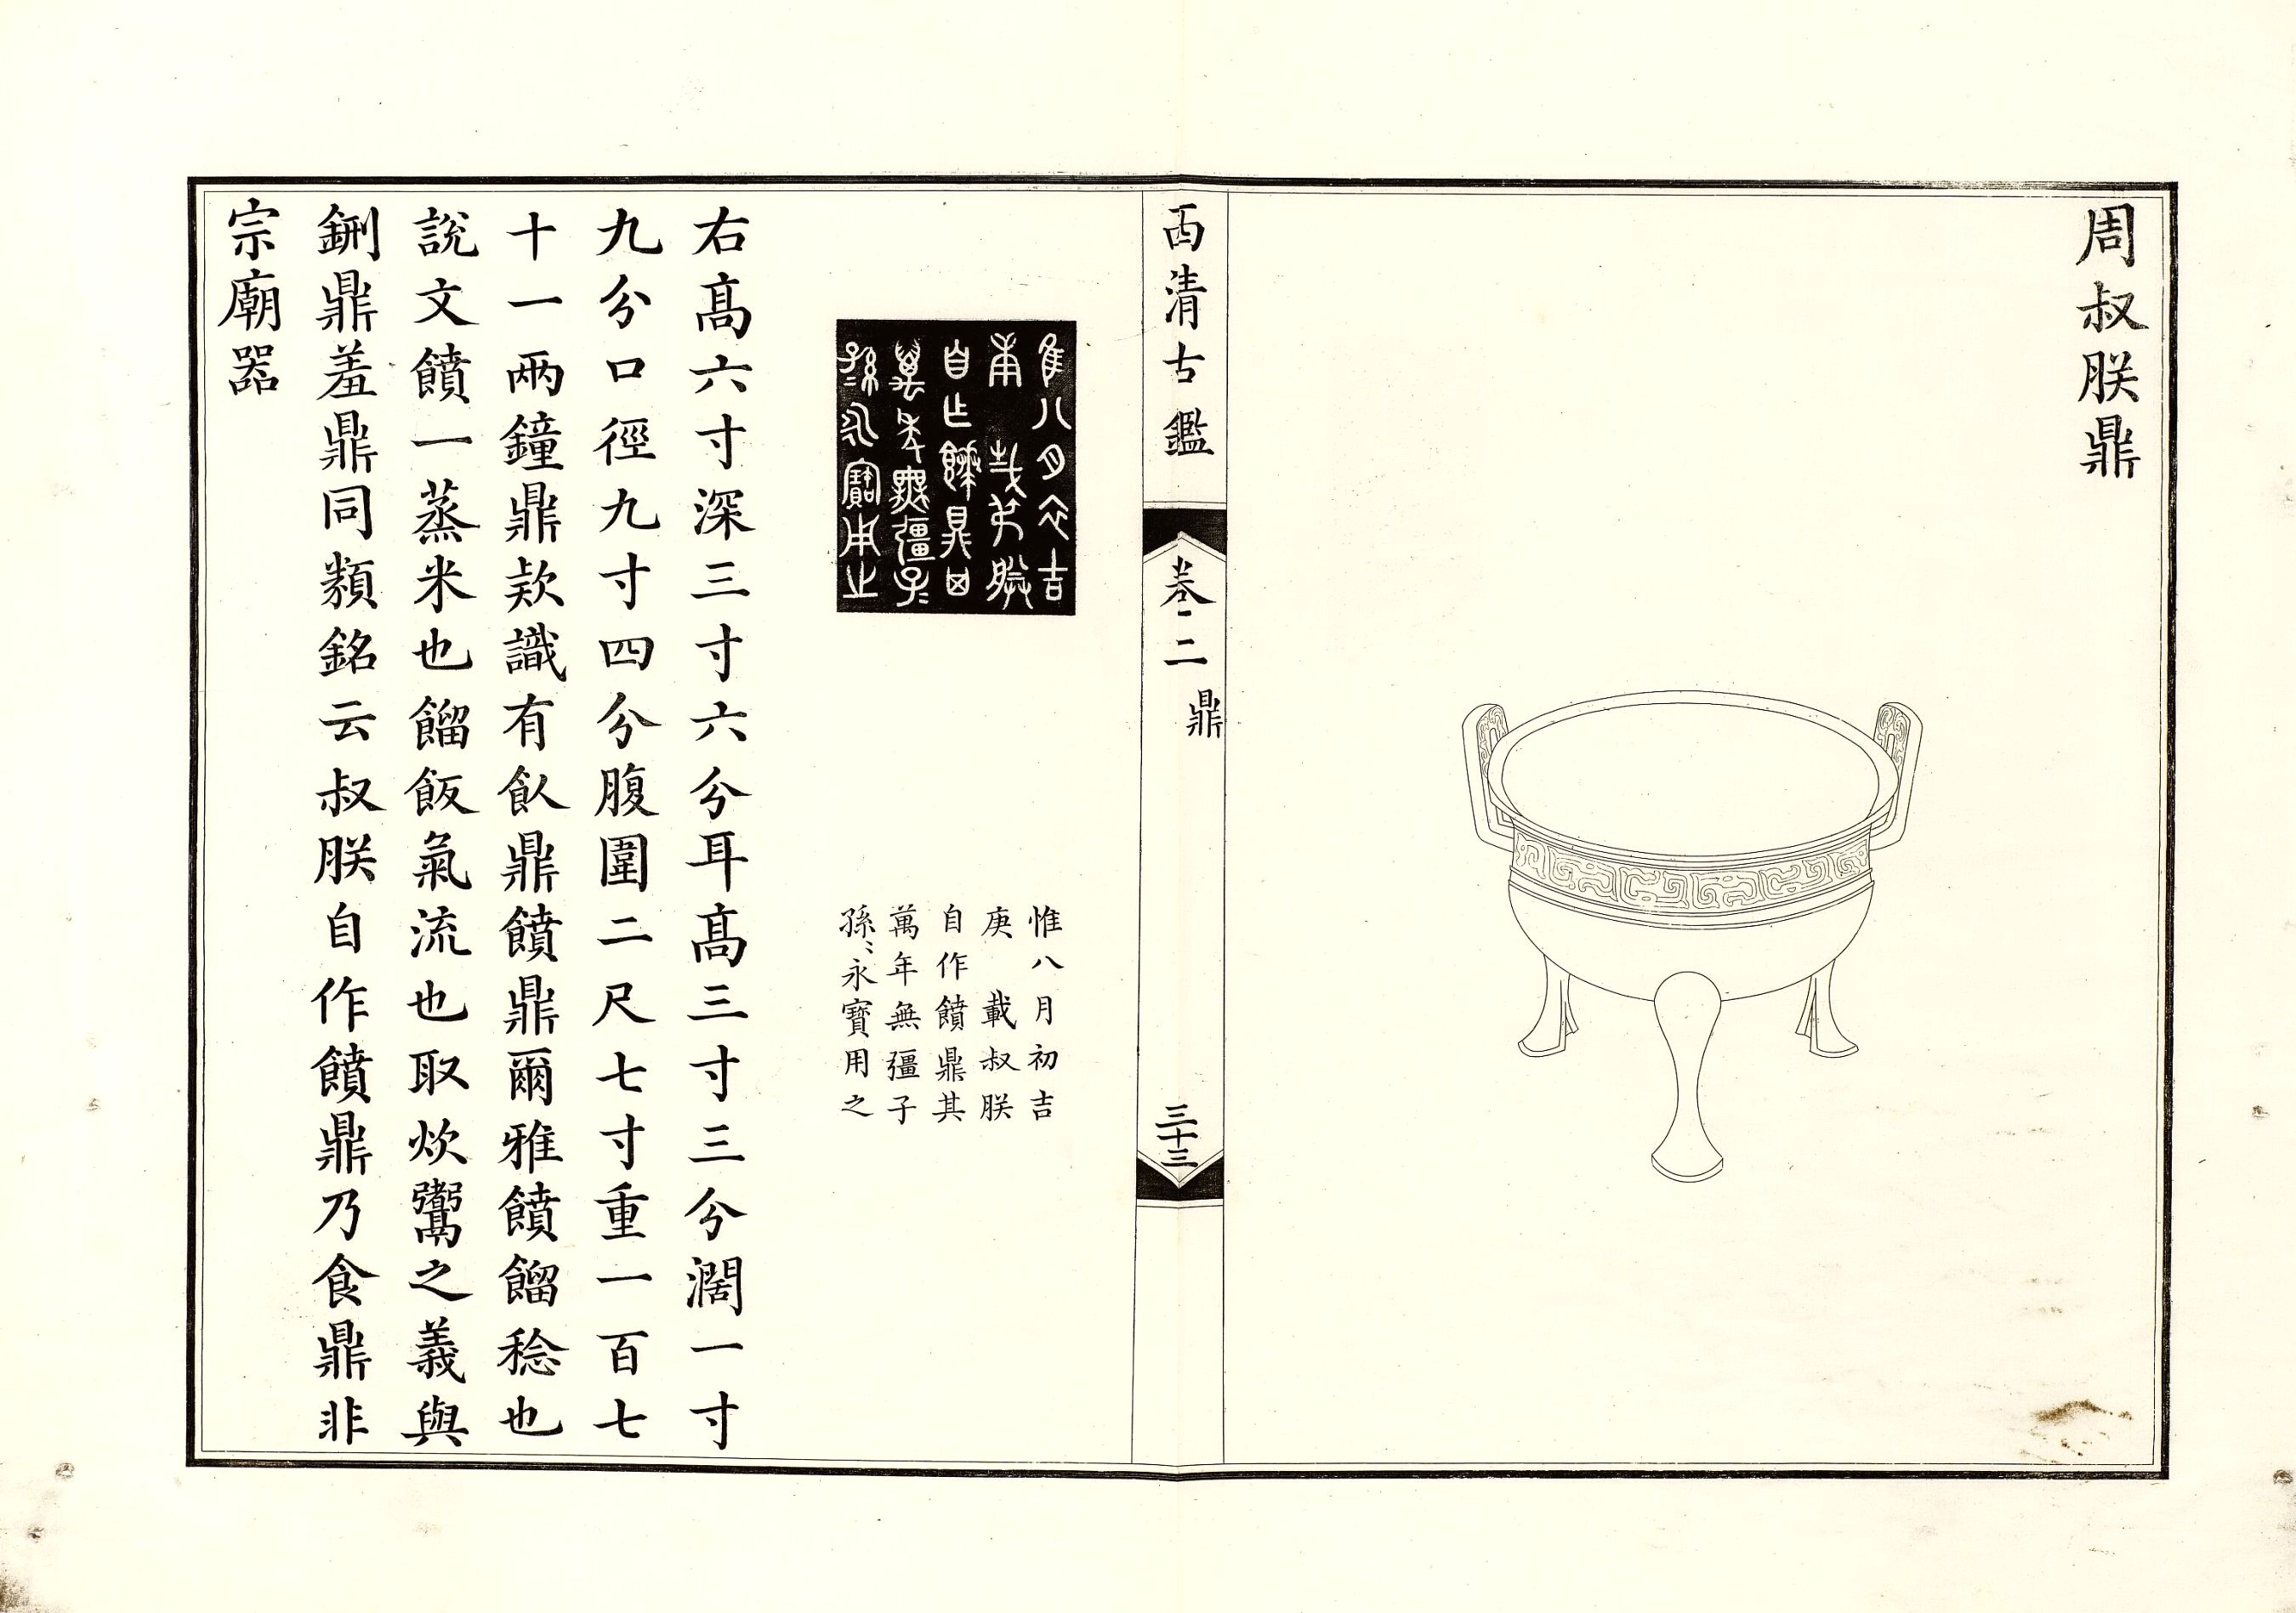 周叔朕鼎
西清古鑑
卷二 鼎
三十三
惟八月初吉
庚 載叔朕
自作饙鼎其
萬年無彊子
孫〻永寶用之
右髙六寸深三寸六分耳髙三寸三分濶一寸
九分口徑九寸四分腹圍二尺七寸重一百七
十一兩鐘鼎款識有飤鼎饙鼎爾雅饙餾稔也
說文饙一蒸米也餾飯氣流也取炊鬻之義與
鉶鼎羞鼎同類銘云叔朕自作饙鼎乃食鼎非
宗廟器